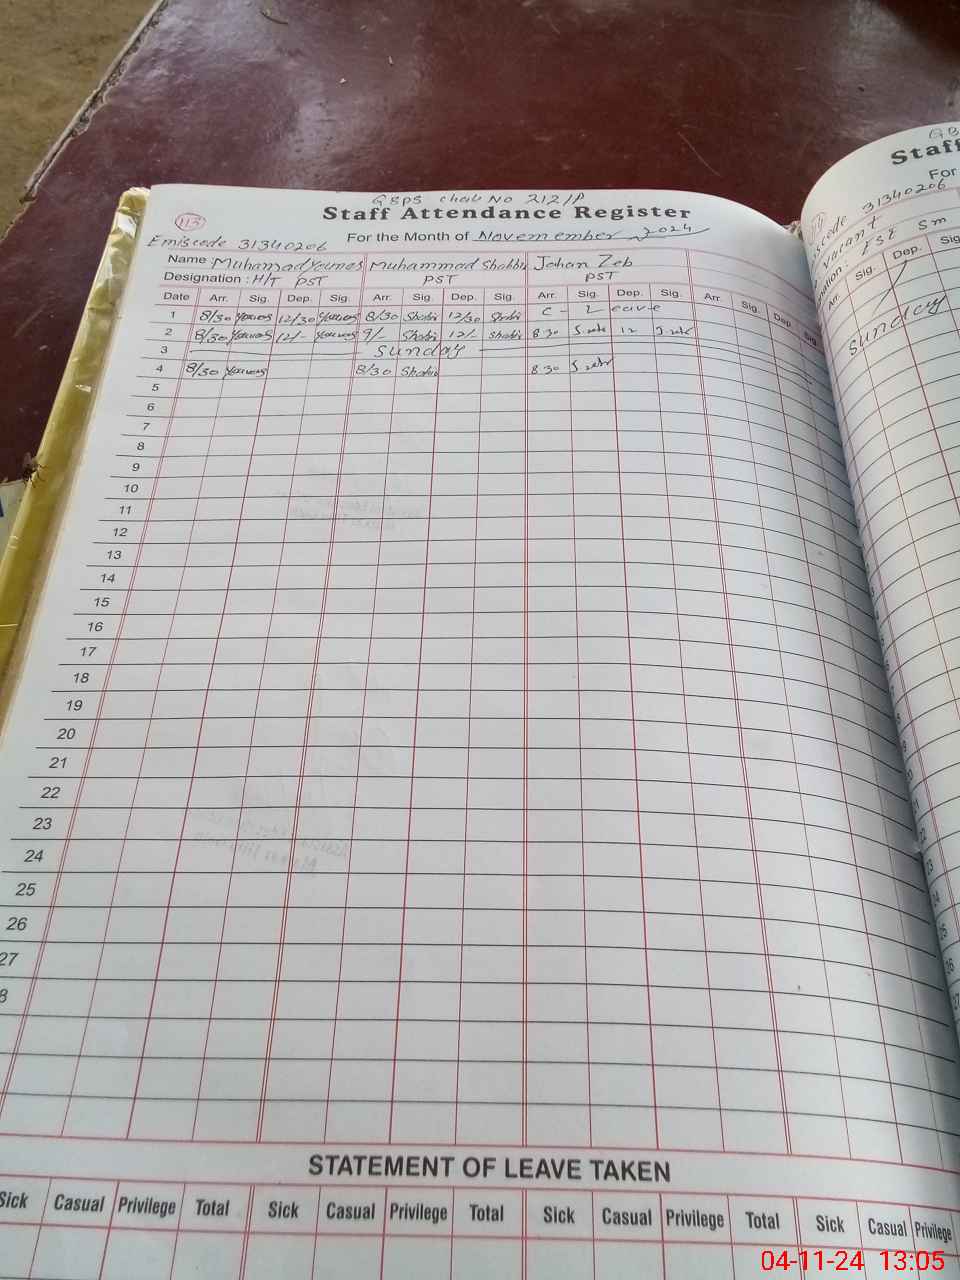 GBPS Chak No 212/P
Staff Attendance Register
113
Emiscode 31340206 For the Month of Novemember 2024
Name Muhammad Younes Muhammad Shabbir Jehan Zeb
Designation : H/T PST PST PST
Date Arr. Sig. Dep. Sig. Arr. Sig. Dep. Sig. Arr. Sig. Dep. Sig. Arr. Sig. Dep. Sig.
1 8/30 Younes 12/30 Younes 8/30 Shabir 12/30 Shabir C - Leave
2 8/30 Younes 12/- Younes 9/- Shabir 12/- Shabir 8 30 12
3 Sunday
4 8/30 Younes 8/30 Shabir 8 30
5
6
7
8
9
10
11
12
13
14
15
16
17
18
19
20
21
22
23
24
25
26
27
8
STATEMENT OF LEAVE TAKEN
Sick Casual Privilege Total Sick Casual Privilege Total Sick Casual Privilege Total Sick Casual Privilege
GB
Staff
For
31340206
Vacant
ESE Sm
Arr. Sig. Dep. Sig
Sunday
04-11-24 13:05